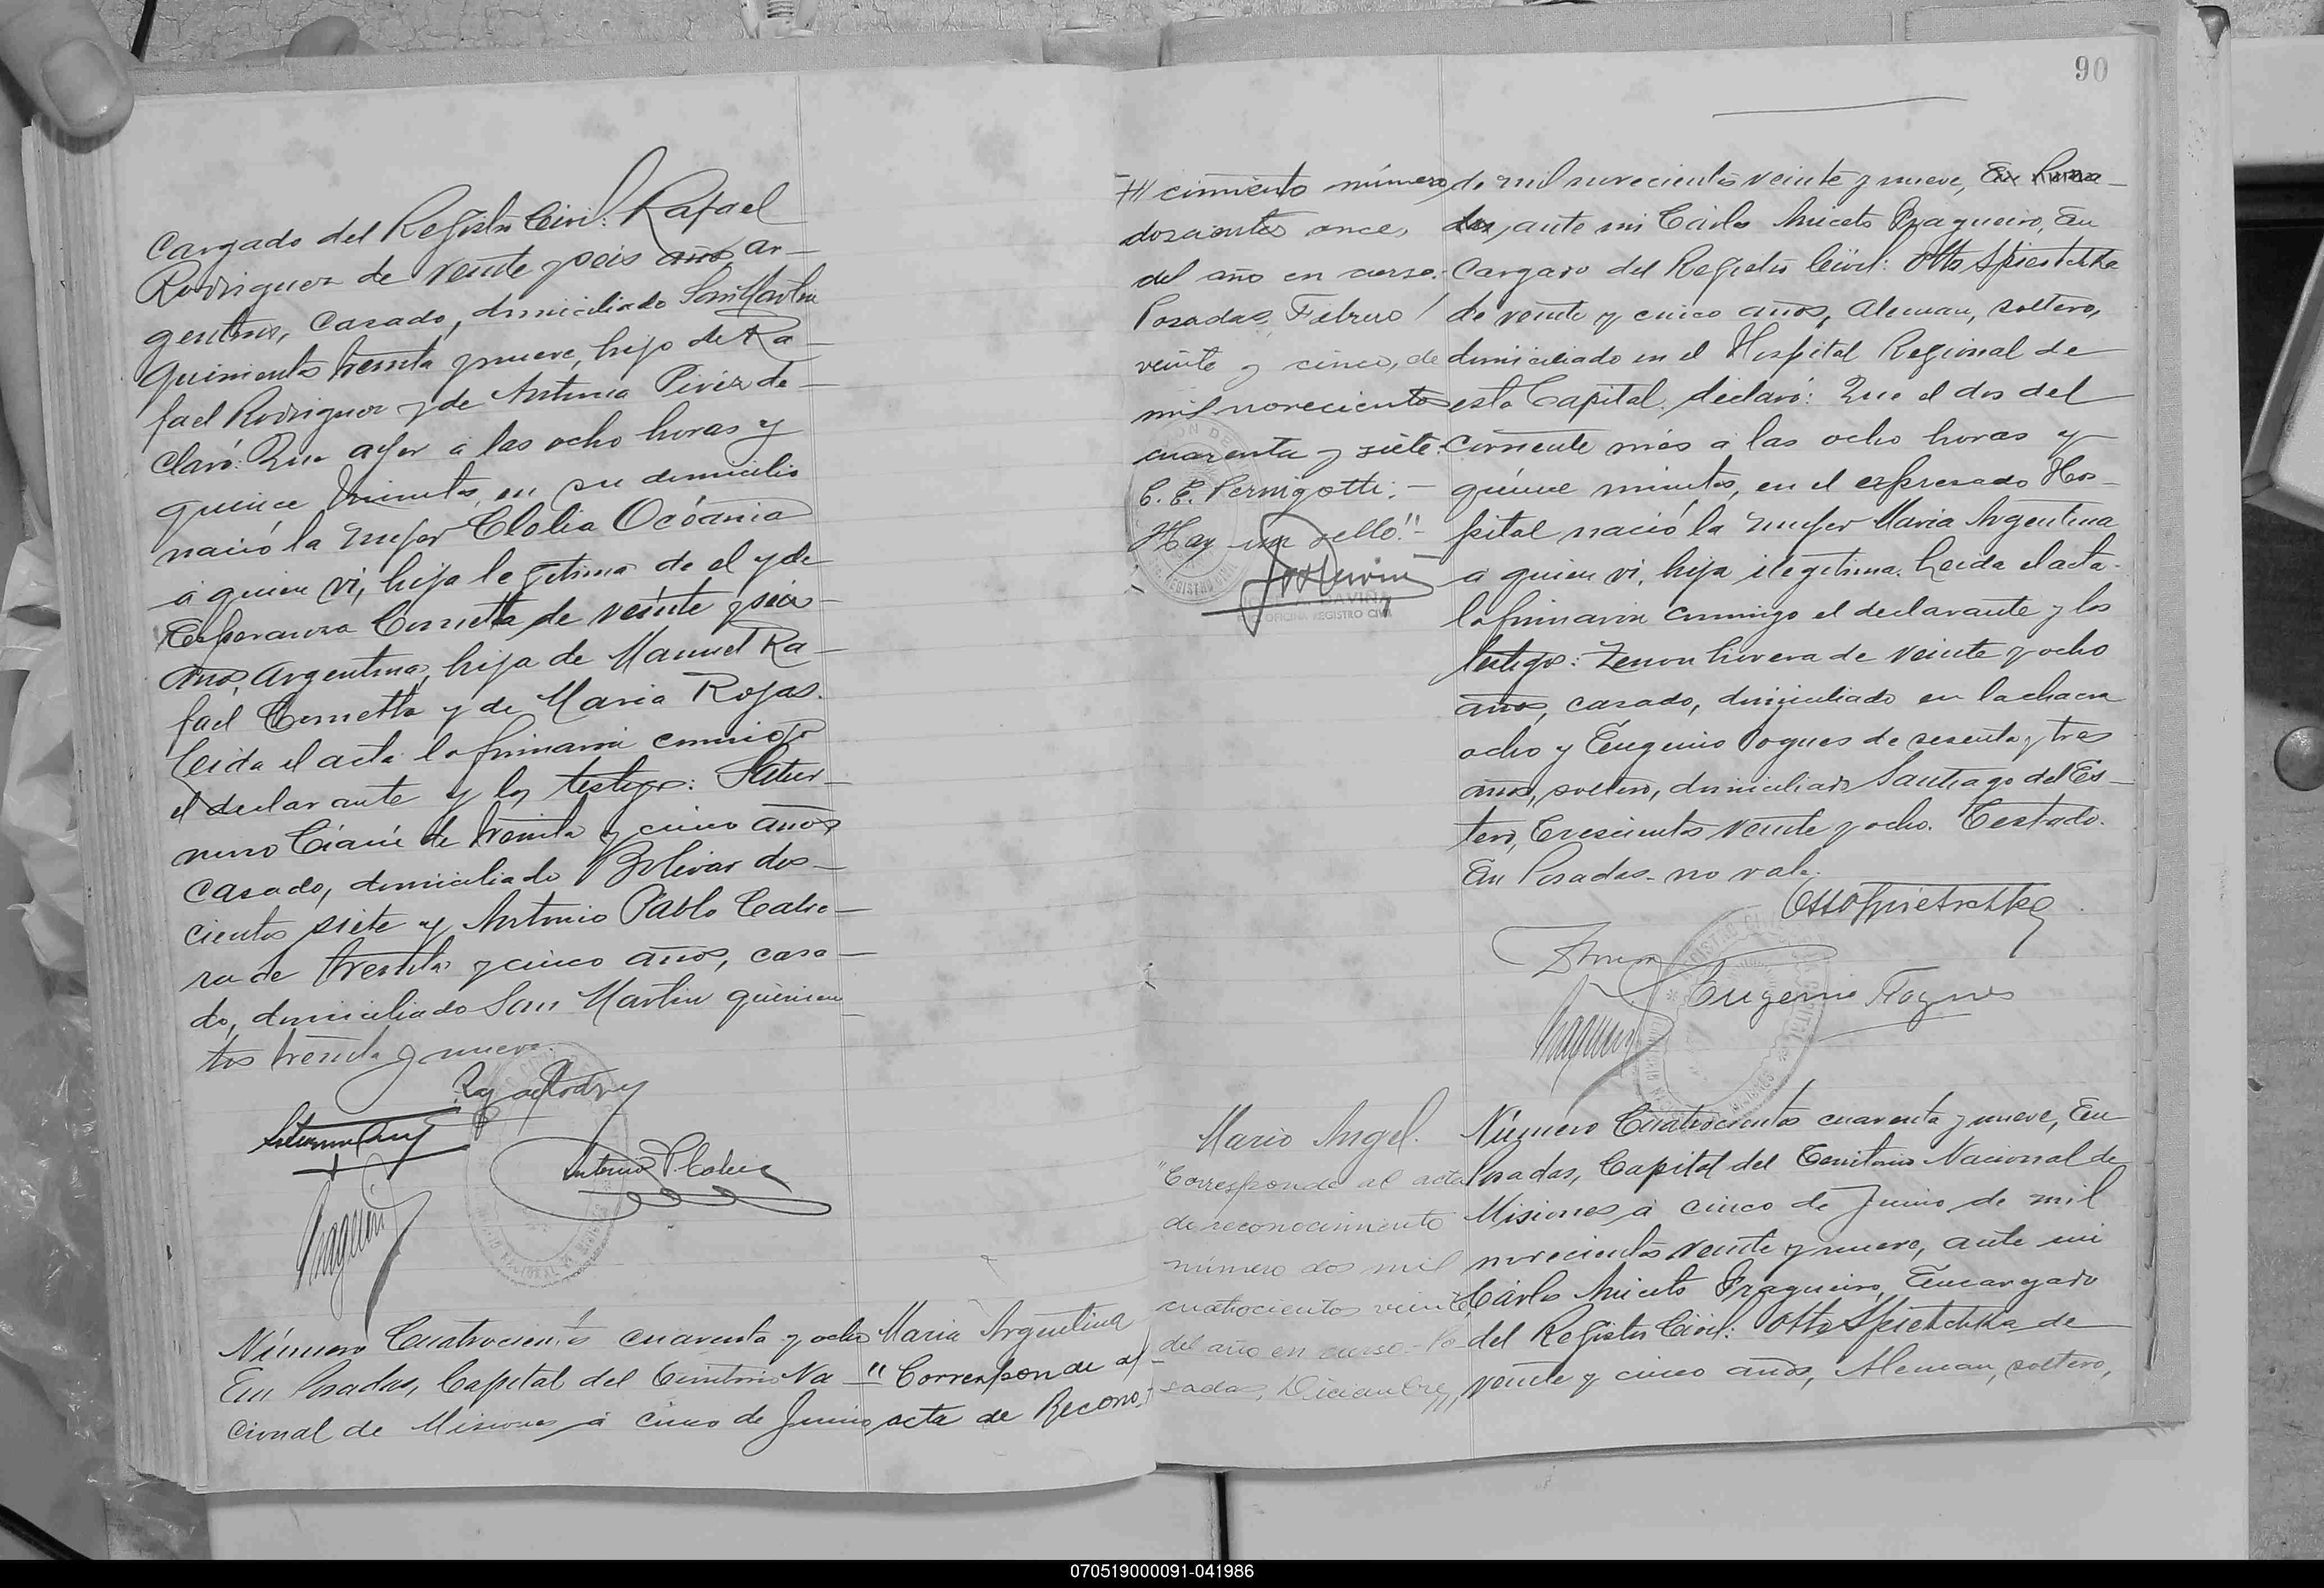 cargado del Registro Civil: Rafael
Rodriguez de veinte y seis años, ar-
gentino, casado, domiciliado San Martin
quinientos treinta y nueve, hijo de Ra-
fael Rodriguez y de Antonia Piriz de-
claró: Que ayer á las ocho horas y
quince minutos, en su domicilio
nació la mujer Clelia Oceania
á quien vi, hija legitima de el y de
Esperanza Cornetta de veinte y seis
años, argentina, hija de Manuel Ra-
fael Cornetta y de Maria Rojas.
Leida el acta la firmaron conmigo
el declarante y los testigos: Satur-
nino de treinta y cinco años
casado, domiciliado Bolivar dos-
cientos siete y Antonio Pablo Cabre-
ra de treinta y cinco años, casa-
do, domiciliado San Martin quinien-
tos treinta y nueve.
Antonio P. Cabrera
Número Cuatrocientos cuarenta y ocho
En Posadas, Capital del Territorio Na-
cional de Misiones á cinco de Junio
Maria Argentina
"Corresponde al
acta de Recono-
90
cimiento número
doscientos once,
del año en curso.
Posadas, Febrero
veinte y cinco, de
mil novecientos
cuarenta y siete.
C. E. Pernigotti.-
Hay un sello".-
OFICINA REGISTRO CIVIL
de mil novecientos veinte y nueve, En Posa-
das, ante mi Cárlos Aniceto Fragueiro, En
cargado del Registro Civil: Otto Spietchka
de veinte y cinco años, Aleman, soltero,
domiciliado en el Hospital Regional de
esta Capital, declaró: Que el dos del
corriente mes á las ocho horas y
quince minutos, en el expresado Hos-
pital nació la mujer Maria Argentina
á quien vi, hija ilegitima. Leida el acta
la firmaron conmigo el declarante y los
testigos: Zenon Rivera de veinte y ocho
años, casado, domiciliado en la chacra
ocho y Eugenio Fogues de sesenta y tres
años, soltero, domiciliado Santiago del Es-
tero, trescientos veinte y ocho. Testado.
En Posadas- no vale.
Otto Spietschka
Eugenio Fogues
Mario Angel.
"Corresponde al acta
de reconocimiento
número dos mil
cuatrocientos veinte,
del año en curso.- Po-
sadas, Diciembre
Número Cuatrocientos cuarenta y nueve, En
Posadas, Capital del Territorio Nacional de
Misiones á cinco de Junio de mil
novecientos veinte y nueve, ante mi
Cárlos Aniceto Fragueiro, Encargado
del Registro Civil: Otto Spietchka de
veinte y cinco años, Aleman, soltero,
070519000091-041986